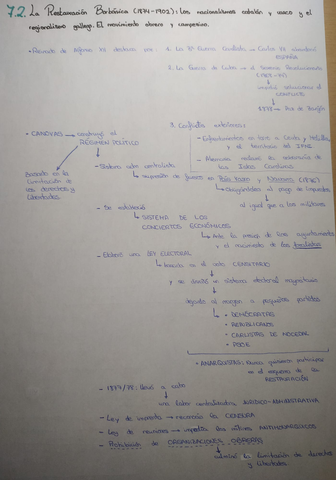 7.2. La Restauración Borbónica (1874-1902): los nacionalismos catalán y vasco y el
regionalismo gallego. El movimiento obrero y campesino.
• Reinado de Alfonso XII destaca por:
1. La 3ª Guerra Carlista → Carlos VII abandona
ESPAÑA
2. La Guerra de Cuba → el Sexenio Revolucionario
(1868-78)
1878 → Paz de Zanjón
3. Conflictos exteriores:
- Enfrentamientos en torno a Ceuta y Melilla
y el territorio del IFNI
- Alemania reclamó la soberanía de
las Islas Carolinas
• CÁNOVAS → construyó el
RÉGIMEN POLÍTICO
Basado en la
limitación de
los derechos y
libertades
- Elaboró orden centralista
→ supresión de fueros en País Vasco y Navarra (1876)
→ Obligándolos al pago de impuestos
al igual que a los militares
- Se estableció
→ SISTEMA DE LOS
CONCIERTOS ECONÓMICOS
→ Ante la presión de los ayuntamientos
y el nacimiento de los
- Elaboró una LEY ELECTORAL
→ basada en el voto CENSITARIO
y se añadió un sistema electoral mayoritario
dejando al margen a pequeños partidos
• DEMÓCRATAS
• REPUBLICANOS
• CARLISTAS DE NOCEDAL
• PSOE
• ANARQUISTAS: nunca quisieron participar
en el esquema de la
RESTAURACIÓN
- 1877/78: llevó a cabo
una labor centralizadora JURÍDICO-ADMINISTRATIVA
- Ley de imprenta → reconocía la CENSURA
- Ley de reuniones → impedía los mítines ANTIMONÁRQUICOS
- Prohibición de ORGANIZACIONES OBRERAS
→ la limitación de derechos
y libertades.